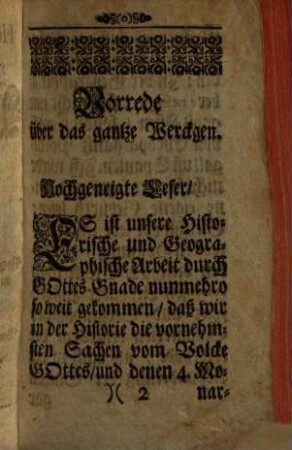 §(o)§
Vorrede
über das gantze Werckgen.
Hochgeneigte Leser/
ES ist unsere Histo-
rische und Geogra-
phische Arbeit durch
GOttes Gnade nunmehro
so weit gekommen / daß wir
in der Historie die vornehm-
sten Sachen vom Volcke
GOttes/und denen 4. Mo-
)( 2 nar-